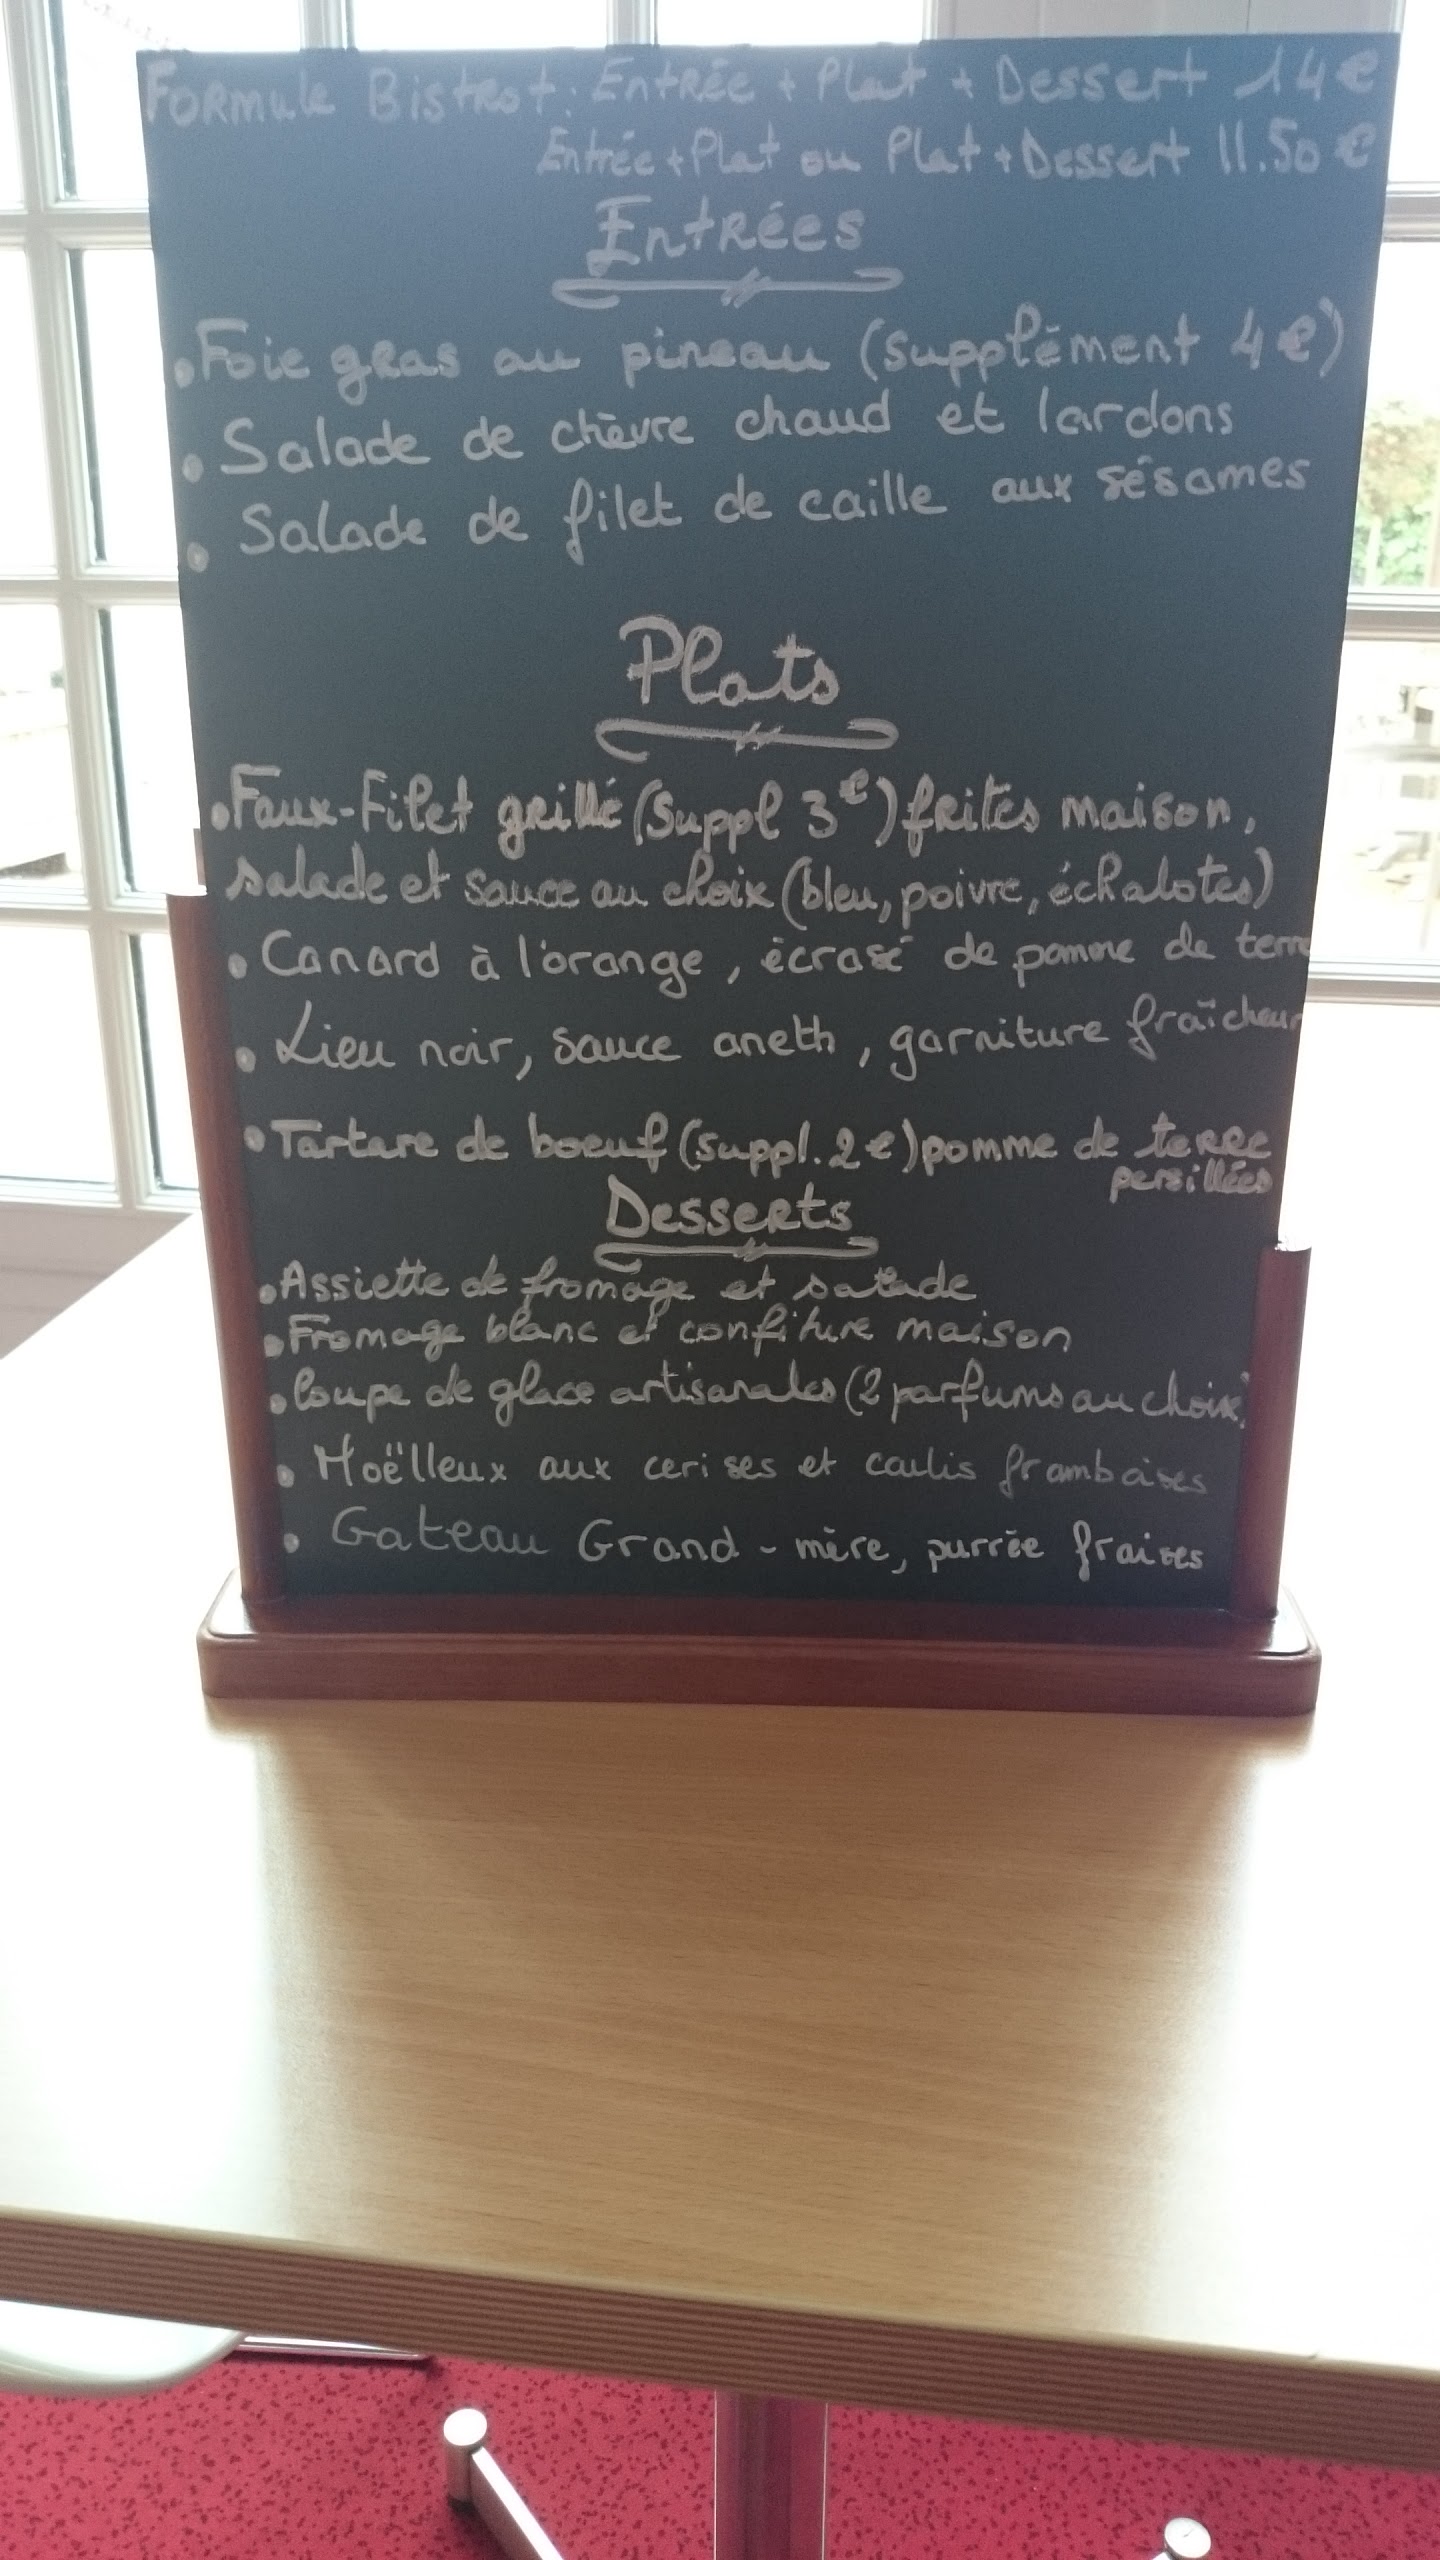 Formule Bistrot: Entrée + Plat + Dessert 14€
Entrée + Plat ou Plat + Dessert 11.50€
Entrées
• Foie gras au pineau (supplément 4€)
• Salade de chèvre chaud et lardons
• Salade de filet de caille aux sésames
Plats
• Faux-Filet grillé (Suppl 3€) frites maison,
salade et sauce au choix (bleu, poivre, échalotes)
• Canard à l'orange, écrasé de pomme de terre
• Lieu noir, sauce aneth, garniture fraîcheur
• Tartare de boeuf (suppl. 2€) pomme de terre
persillées
Desserts
• Assiette de fromage et salade
• Fromage blanc et confiture maison
• Coupe de glace artisanales (2 parfums au choix)
• Moëlleux aux cerises et coulis framboises
• Gateau Grand-mère, purrée fraises